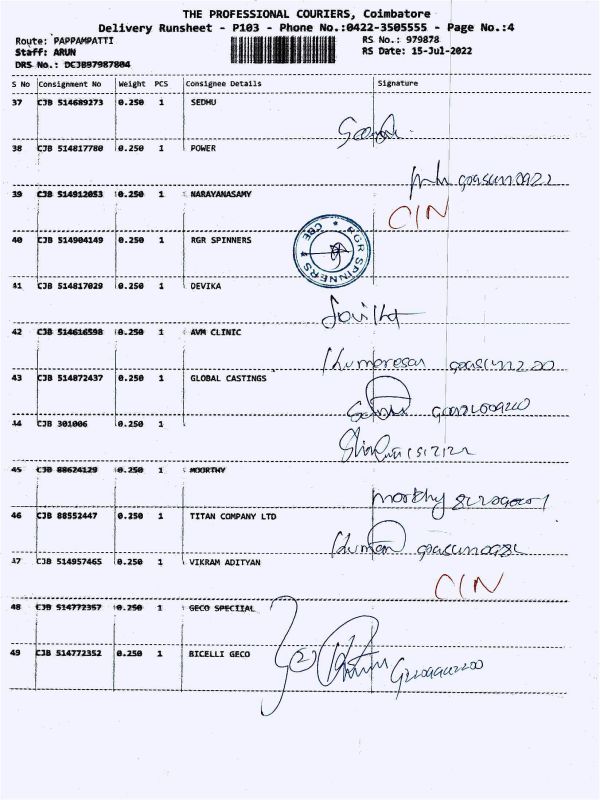 THE PROFESSIONAL COURIERS, Coimbatore
Delivery Runsheet - P103 - Phone No.:0422-3505555 - Page No.:4
Route: PAPPAMPATTI RS No.: 979878
Staff: ARUN RS Date: 15-Jul-2022
DRS No.: DCJB97987804
S No Consignment No Weight PCS Consignee Details Signature
37 CJB 514689273 0.250 1 SEDHU
38 CJB 514817780 0.250 1 POWER
39 CJB 514912053 0.250 1 NARAYANASAMY
CIN
40 CJB 514904149 0.250 1 RGR SPINNERS
RGR SPINNERS CBE
41 CJB 514817029 0.250 1 DEVIKA
42 CJB 514616598 0.250 1 AVM CLINIC
43 CJB 514872437 0.250 1 GLOBAL CASTINGS
44 CJB 301006 0.250 1
45 CJB 88624129 0.250 1 MOORTHY
46 CJB 88552447 0.250 1 TITAN COMPANY LTD
47 CJB 514957465 0.250 1 VIKRAM ADITYAN
CIN
48 CJB 514772357 0.250 1 GECO SPECIIAL
49 CJB 514772352 0.250 1 BICELLI GECO